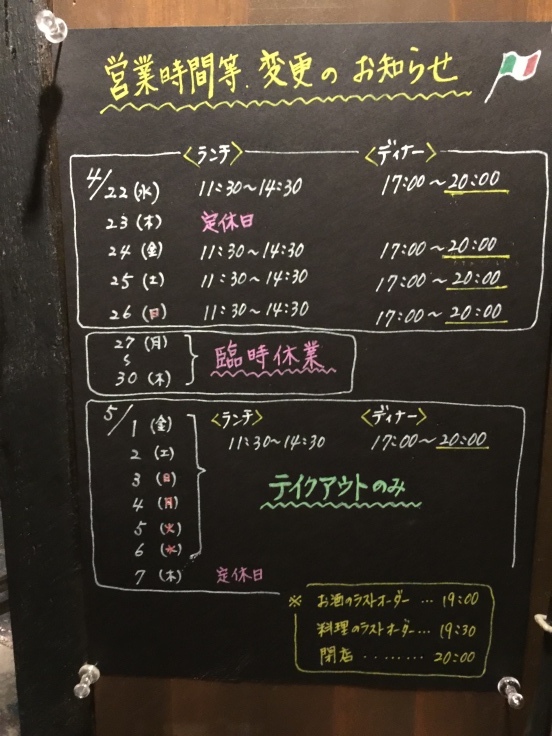 営業時間等.変更のお知らせ
<ランチ> <ディナー>
4/22(水) 11:30~14:30 17:00~20:00
23(木) 定休日
24(金) 11:30~14:30 17:00~20:00
25(土) 11:30~14:30 17:00~20:00
26(日) 11:30~14:30 17:00~20:00
27(月)
〜 臨時休業
30(木)
5/1(金) <ランチ> <ディナー>
11:30~14:30 17:00~20:00
2(土)
3(日) テイクアウトのみ
4(月)
5(火)
6(水)
7(木) 定休日
※ お酒のラストオーダー … 19:00
料理のラストオーダー… 19:30
閉店 ‥‥‥‥ 20:00